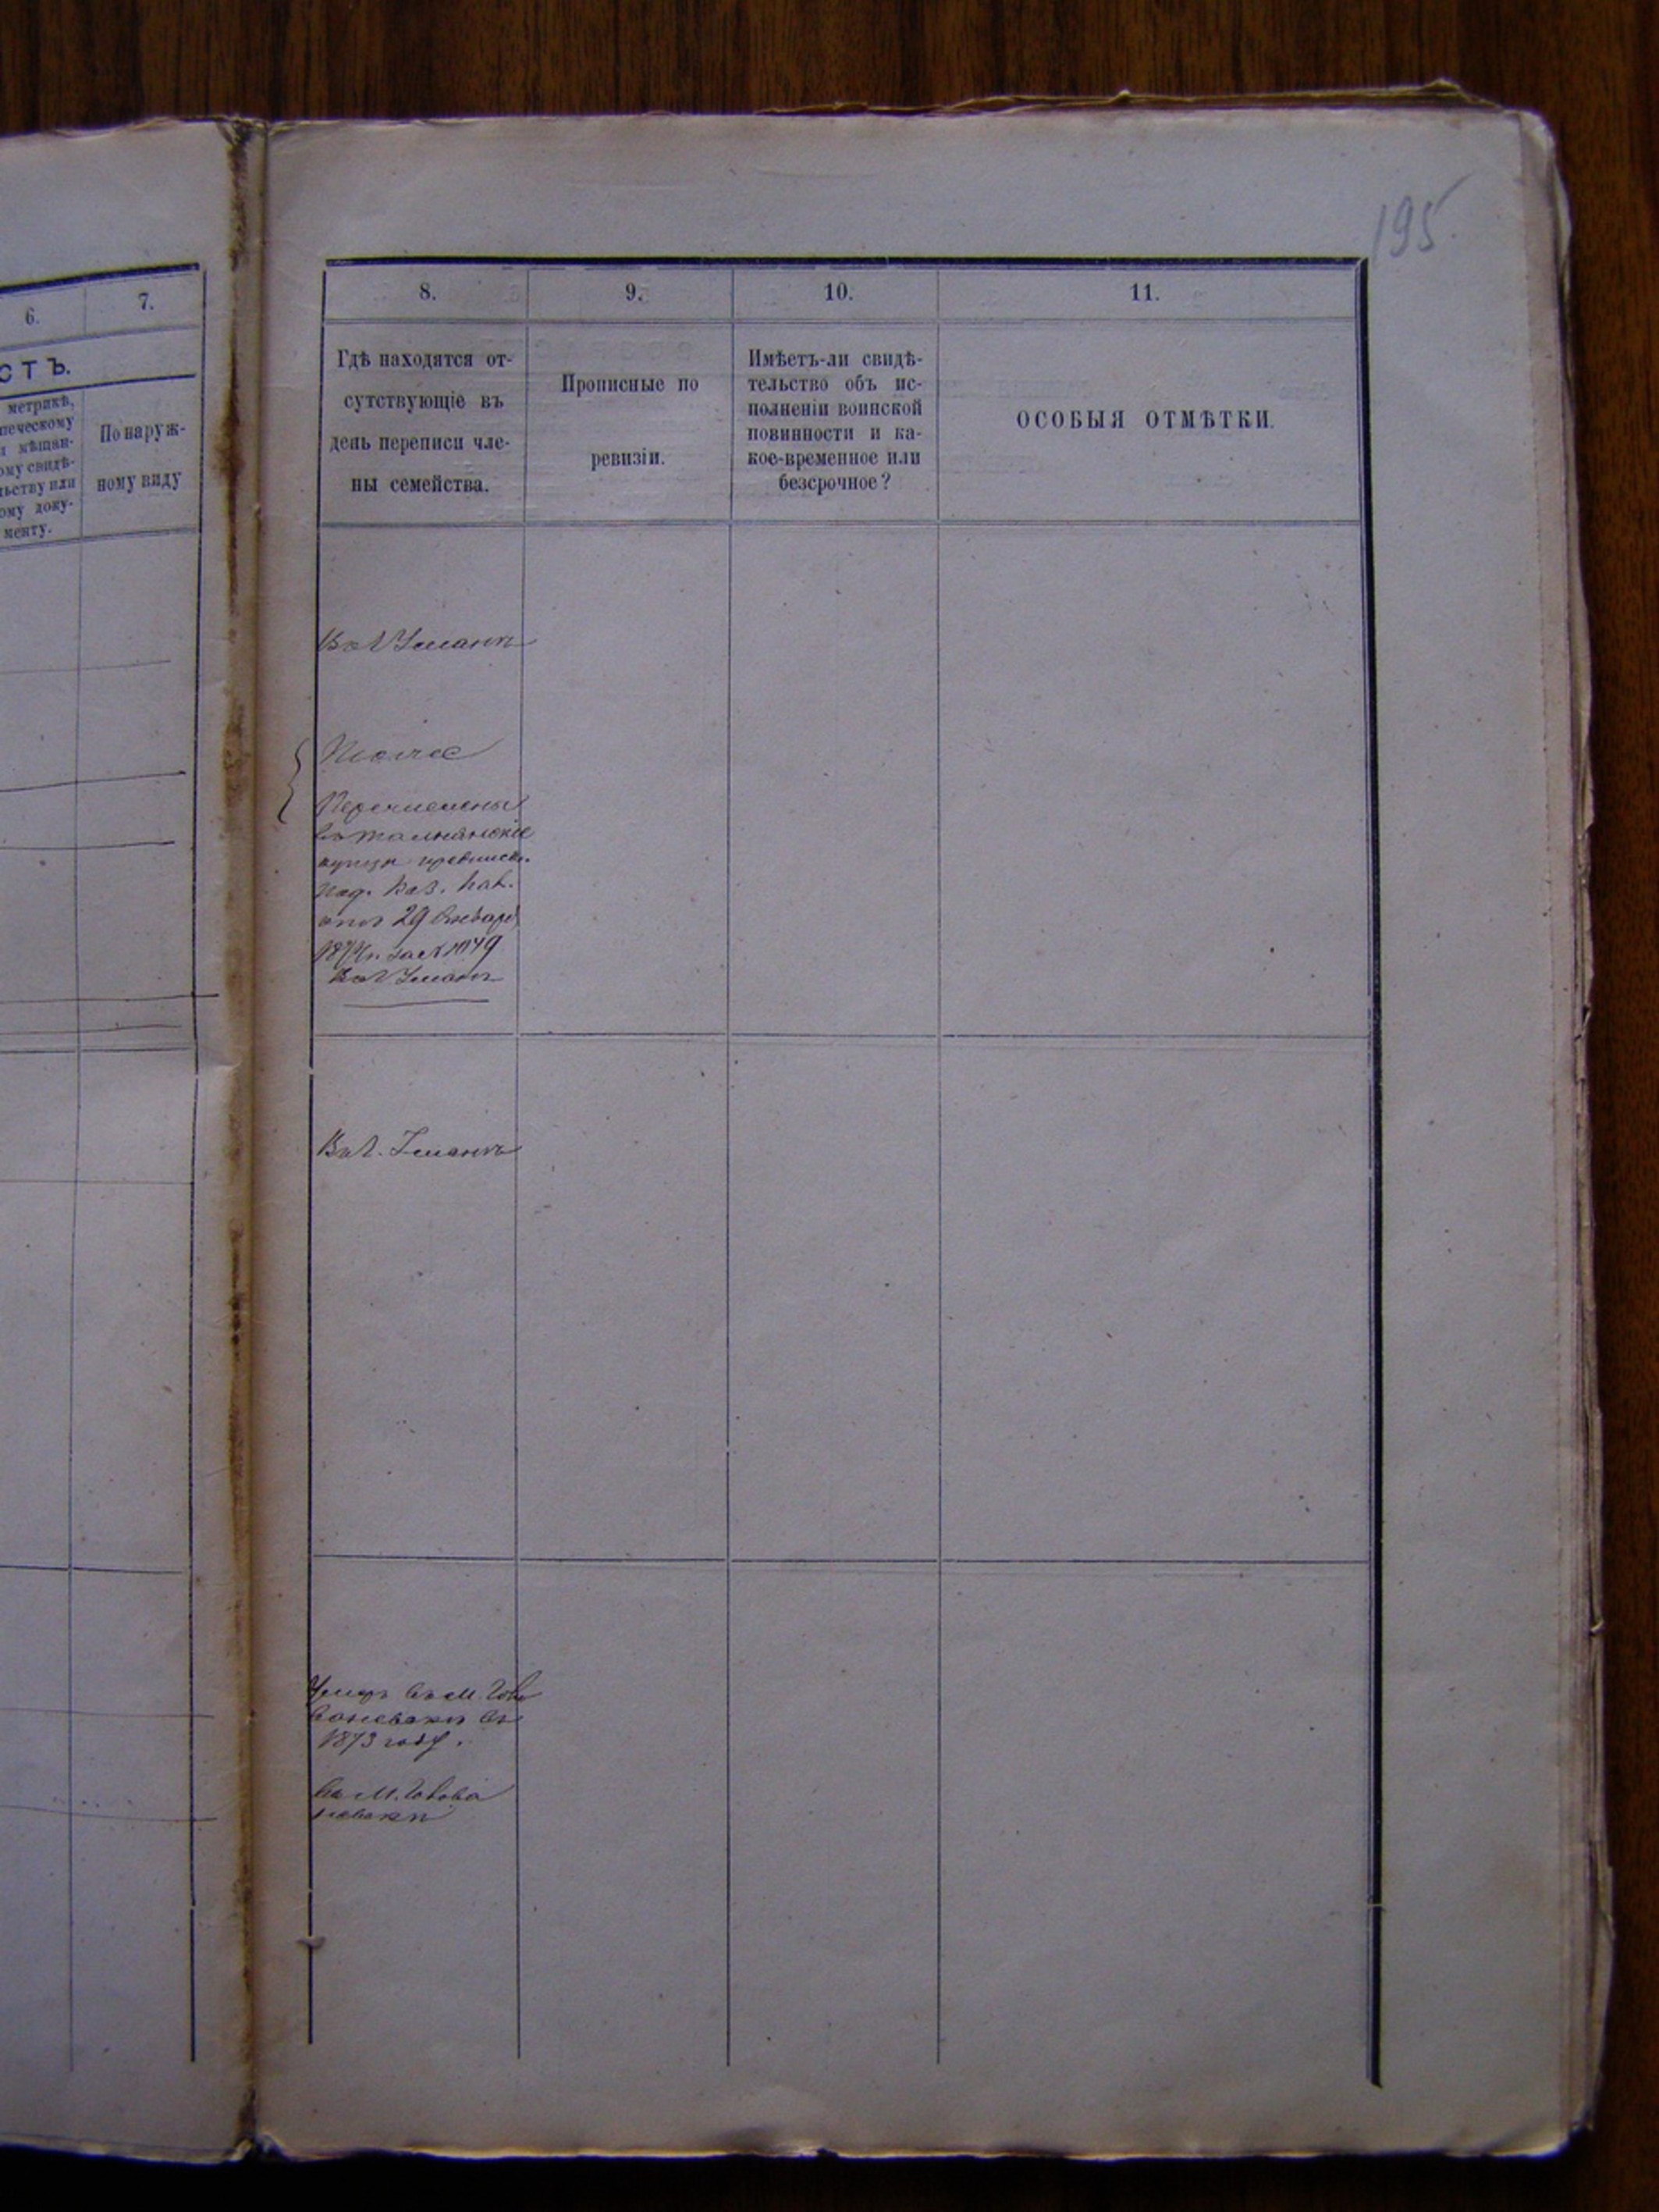 195
6.
7.
СТЪ.
метрикѣ,
мѣщан-
ому свидѣ-
льству или
ому доку-
менту.
По наруж-
ному виду
8.
9.
10.
11.
Гдѣ находятся от-
сутствующіе въ
день переписи чле-
ны семейства.
Прописные по
ревизіи.
Имѣетъ-ли свидѣ-
тельство объ ис-
полненіи воинской
повинности и ка-
кое-временное или
безсрочное?
ОСОБЫЯ ОТМѢТКИ.
Въ Г. Умани
Перечислены
въ
купцы
Каз. Пал.
отъ 29 Января
187 г. за № 1049
Въ Г. Умани
Въ Г. Умани
Умеръ въ М.
въ
1873 году.
въ М.